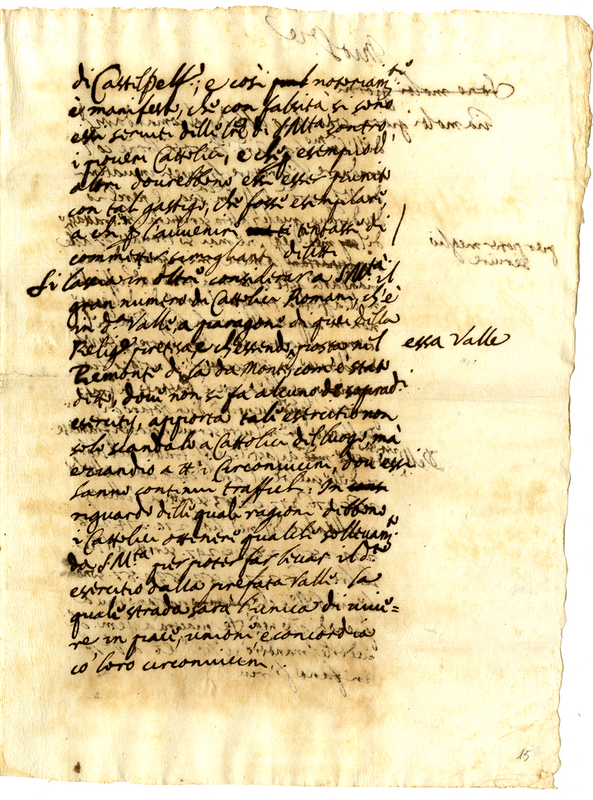 di Castildelf.; e così notoriam.te
è manifesto, che con falsità si sono
essi serviti delle l're di S. M.tà contro
i poveri Cattolici, e ch'p esempio d'
altri dovrebbono essi esser puniti
con tal gastigo, che fosse esemplare
a chi p l'avvenire tentasse di
committer simiglianti delitti
Si lascia in oltre considerar a S. M.tà il
gran numero di Cattolici Romani, ch'è
in d.a Valle a paragone di questi della
Relig.e pretesa e ch'essendo, posta nel essa Valle
Piemonte di là da Monti, com'è stato
detto, dove non si fà alcuno de sopradi
esercitij, apporta tal'essercitio non
solo scandalo a Cattolici del luogo, mà
eziandio a tt.i i Circonvicini, dov'essi
fanno continui traffichi. In
riguardo delle quali ragioni debbono
i Cattolici ottenere qualche sollevam.to
da S. M.tà per poter far levar il d.to
esercitio dalla prefata Valle. la
quale strada sarà l'unica di vive=
re in pace, unione e concordia
co' loro circonvicini.
15